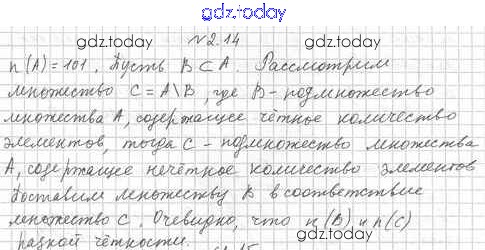 gdz.today
gdz.today gdz.today
№2.14
n(A)=101. Пусть B⊂A. Рассмотрим
множество C=A\B, где B-подмножество
множества A, содержащее чётное количество
элементов, тогда C - подмножество множества
A, содержащее нечётное количество элементов
Поставим множеству B в соответствие
множество C. Очевидно, что n(B) и n(C)
разной чётности.